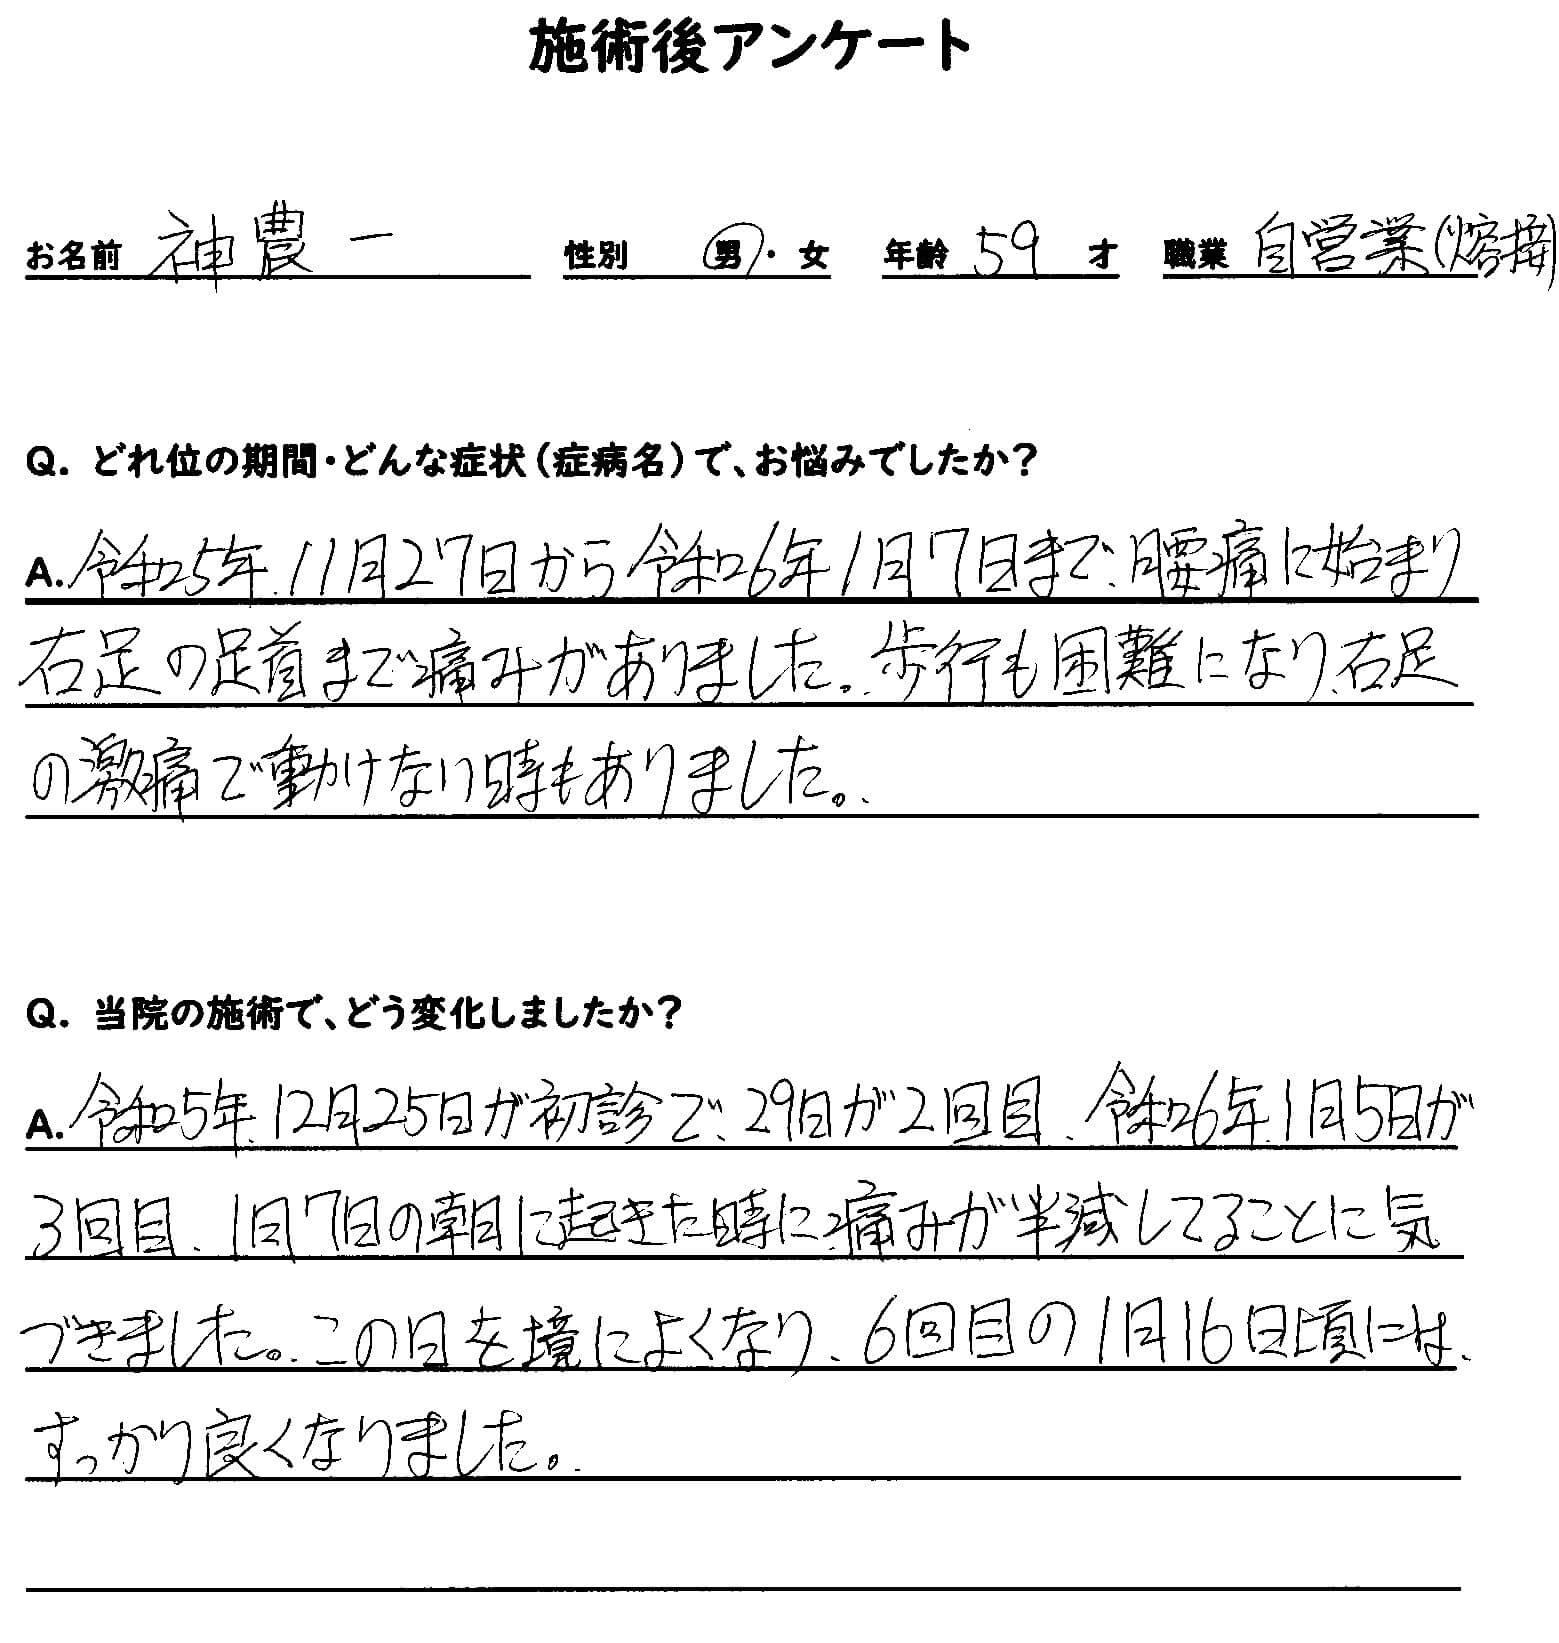 施術後アンケート
お名前 神農一 性別 男・女 年齢 59 才 職業 自営業(熔接)
Q. どれ位の期間・どんな症状(症病名)で、お悩みでしたか?
A. 令和5年、11月27日から令和6年1月7日まで、腰痛に始まり
右足の足首まで痛みがありました。歩行も困難になり、右足
の激痛で動けない時もありました。
Q. 当院の施術で、どう変化しましたか?
A. 令和5年、12月25日が初診で、29日が2回目、令和6年、1月5日が
3回目、1月7日の朝に起きた時に、痛みが半減してることに気
づきました。この日を境によくなり、6回目の1月16日頃には、
すっかり良くなりました。